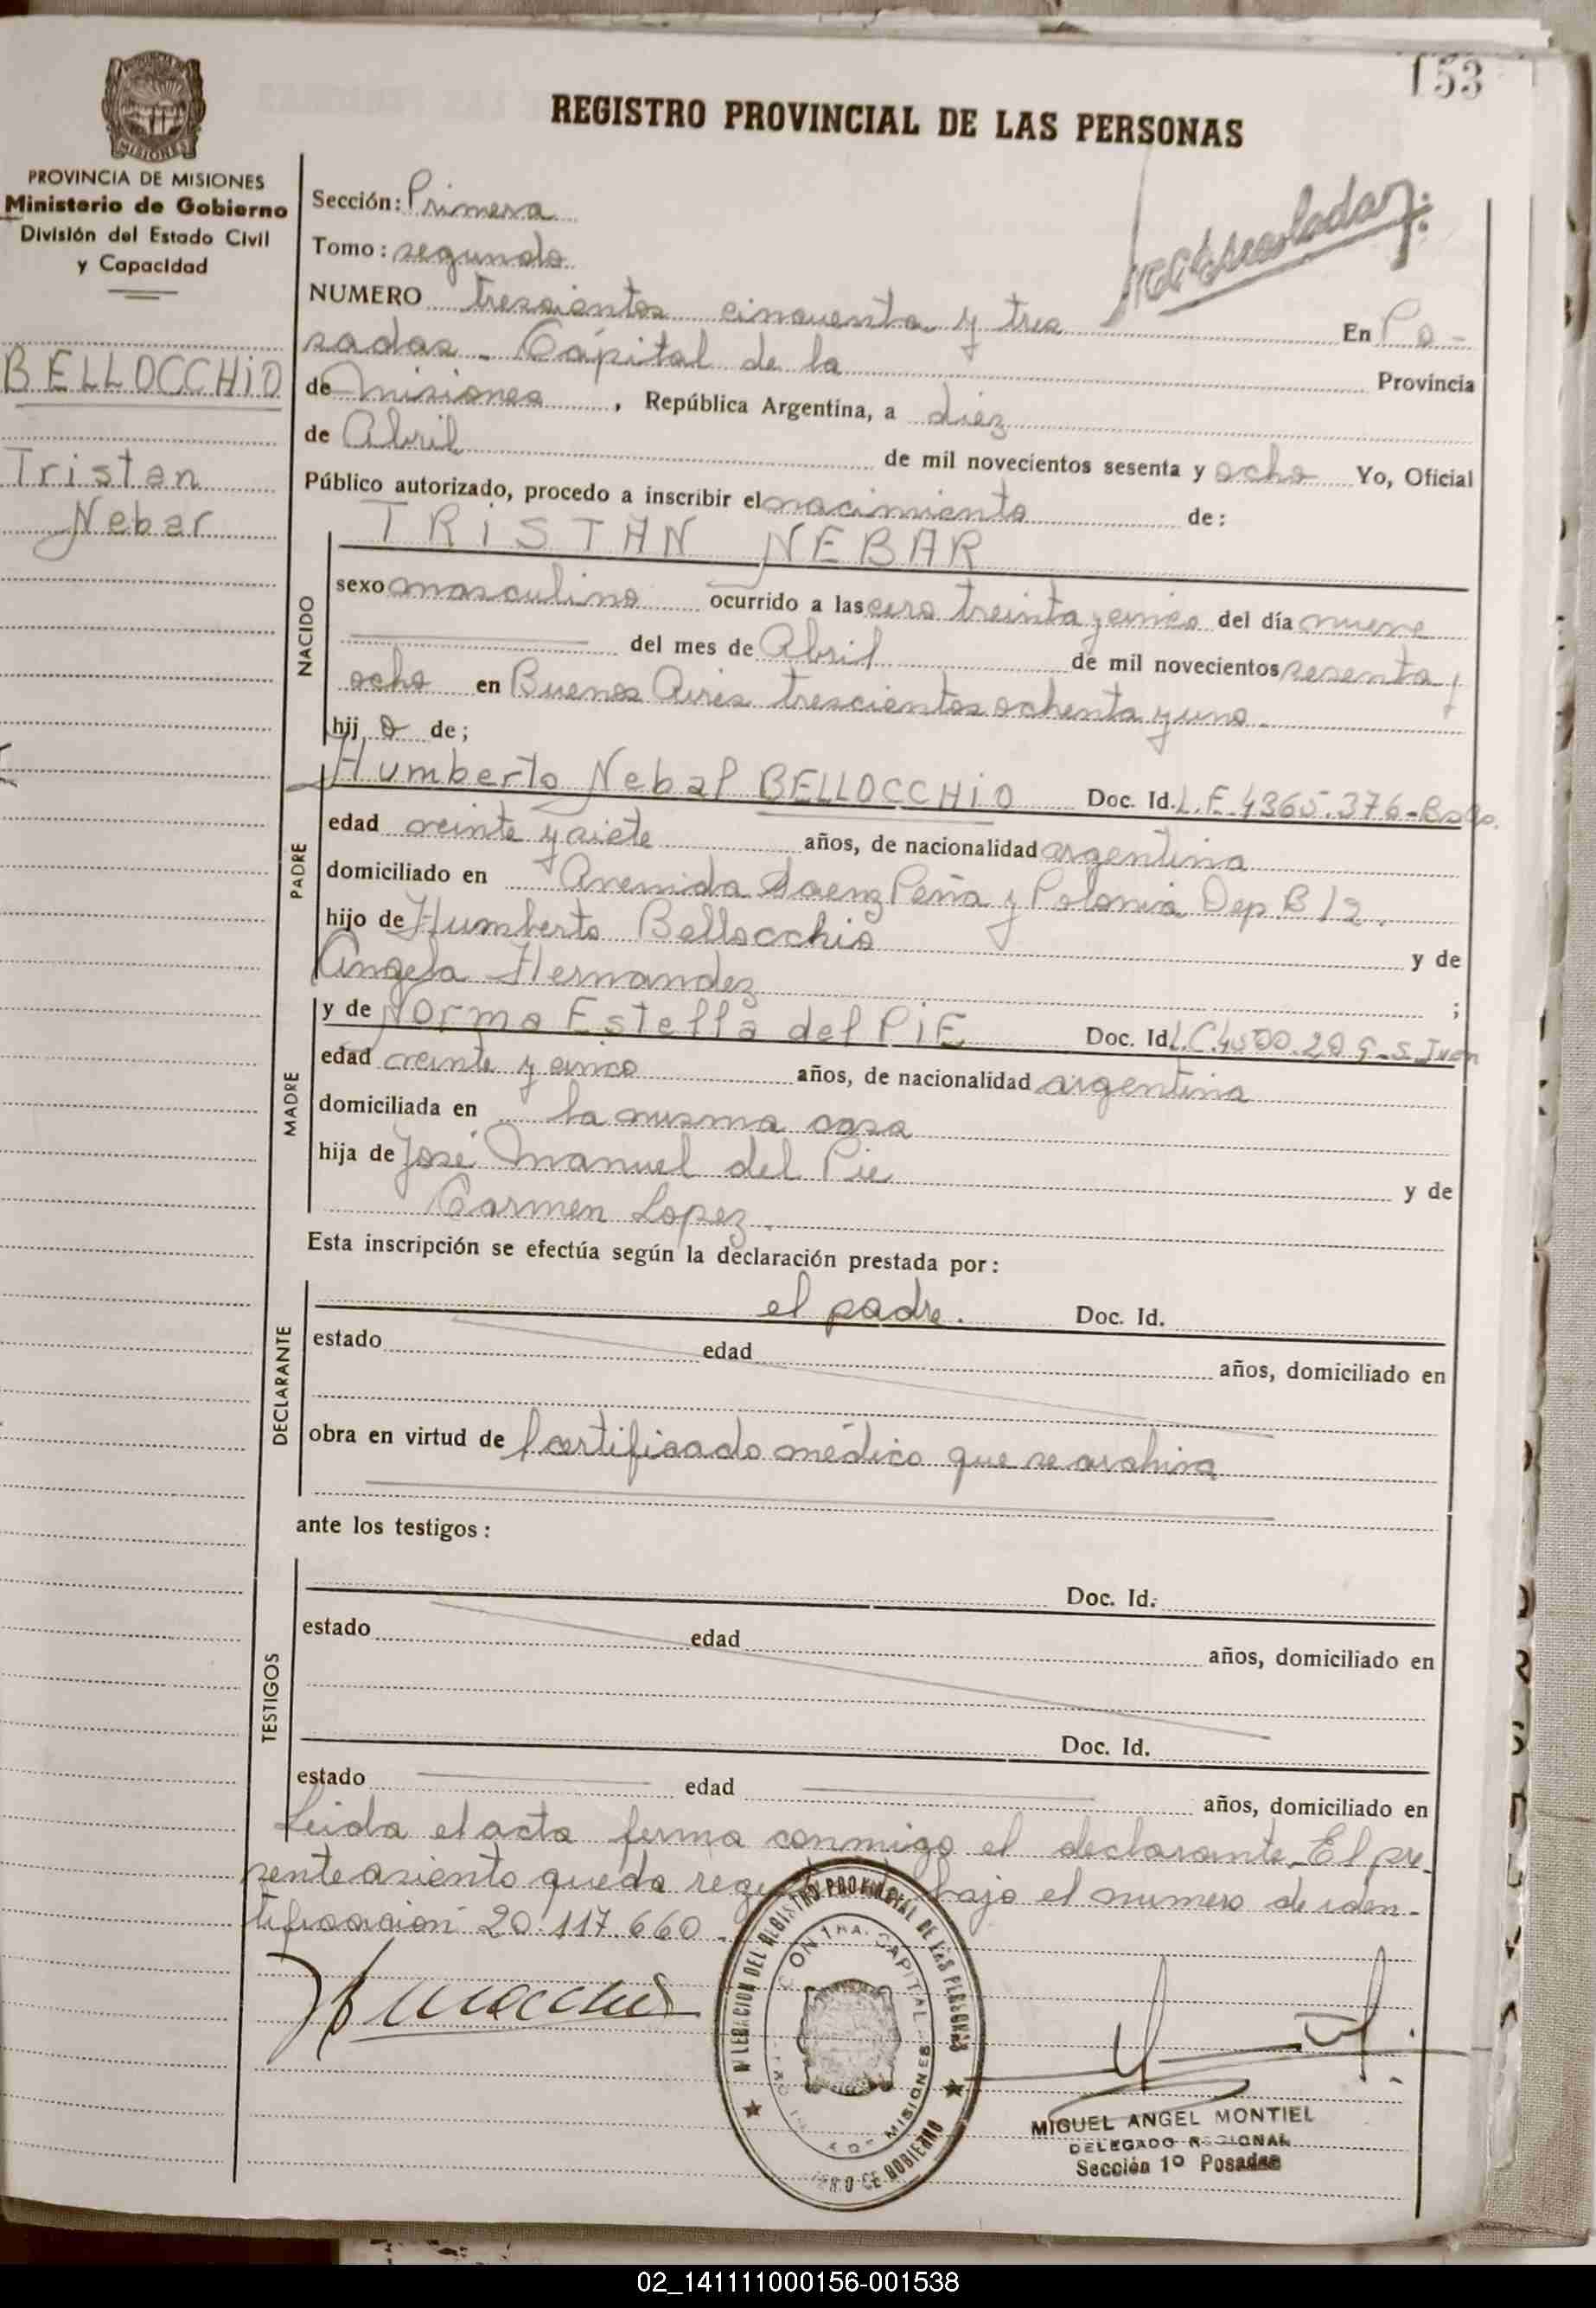 153
REGISTRO PROVINCIAL DE LAS PERSONAS
MISIONES
PROVINCIA DE MISIONES
Ministerio de Gobierno
División del Estado Civil
y Capacidad
BELLOCCHIO
Tristan
Nebar
Sección: Primera
Tomo: segundo
NUMERO trescientos cincuenta y tres En Po-
sadas - Capital de la Provincia
de Misiones, República Argentina, a diez
de Abril de mil novecientos sesenta y ocho Yo, Oficial
Público autorizado, procedo a inscribir el nacimiento de:
TRISTAN NEBAR
NACIDO
sexo masculino ocurrido a las cero treinta y cinco del día nueve
del mes de Abril de mil novecientos sesenta y
ocho en Buenos Aires trescientos ochenta y uno.
hijo de;
PADRE
Humberto Nebal BELLOCCHIO Doc. Id. L.E. 4365.376-Bs As.
edad veinte y siete años, de nacionalidad argentina
domiciliado en Avenida Saenz Peña y Polonia Dep. B 12.
hijo de Humberto Bellocchio y de
Angela Hernandez ;
MADRE
y de Norma Estella del PIE Doc. Id. L.C. S. Juan
edad veinte y cinco años, de nacionalidad argentina
domiciliada en la misma casa
hija de José Manuel del Pie y de
Carmen Lopez.
Esta inscripción se efectúa según la declaración prestada por:
DECLARANTE
el padre. Doc. Id.
estado edad años, domiciliado en
obra en virtud de certificado médico que se archiva
ante los testigos:
TESTIGOS
Doc. Id.
estado edad años, domiciliado en
Doc. Id.
estado edad años, domiciliado en
Leida el acta firma conmigo el declarante. El pre-
sente asiento queda bajo el numero de iden-
tificacion 20.117.660.
DELEGACION DEL REGISTRO PROVINCIAL DE LAS PERSONAS
CAPITAL
MISIONES
DE GOBIERNO
MIGUEL ANGEL MONTIEL
DELEGADO REGIONAL
Sección 1º Posadas
02_141111000156-001538